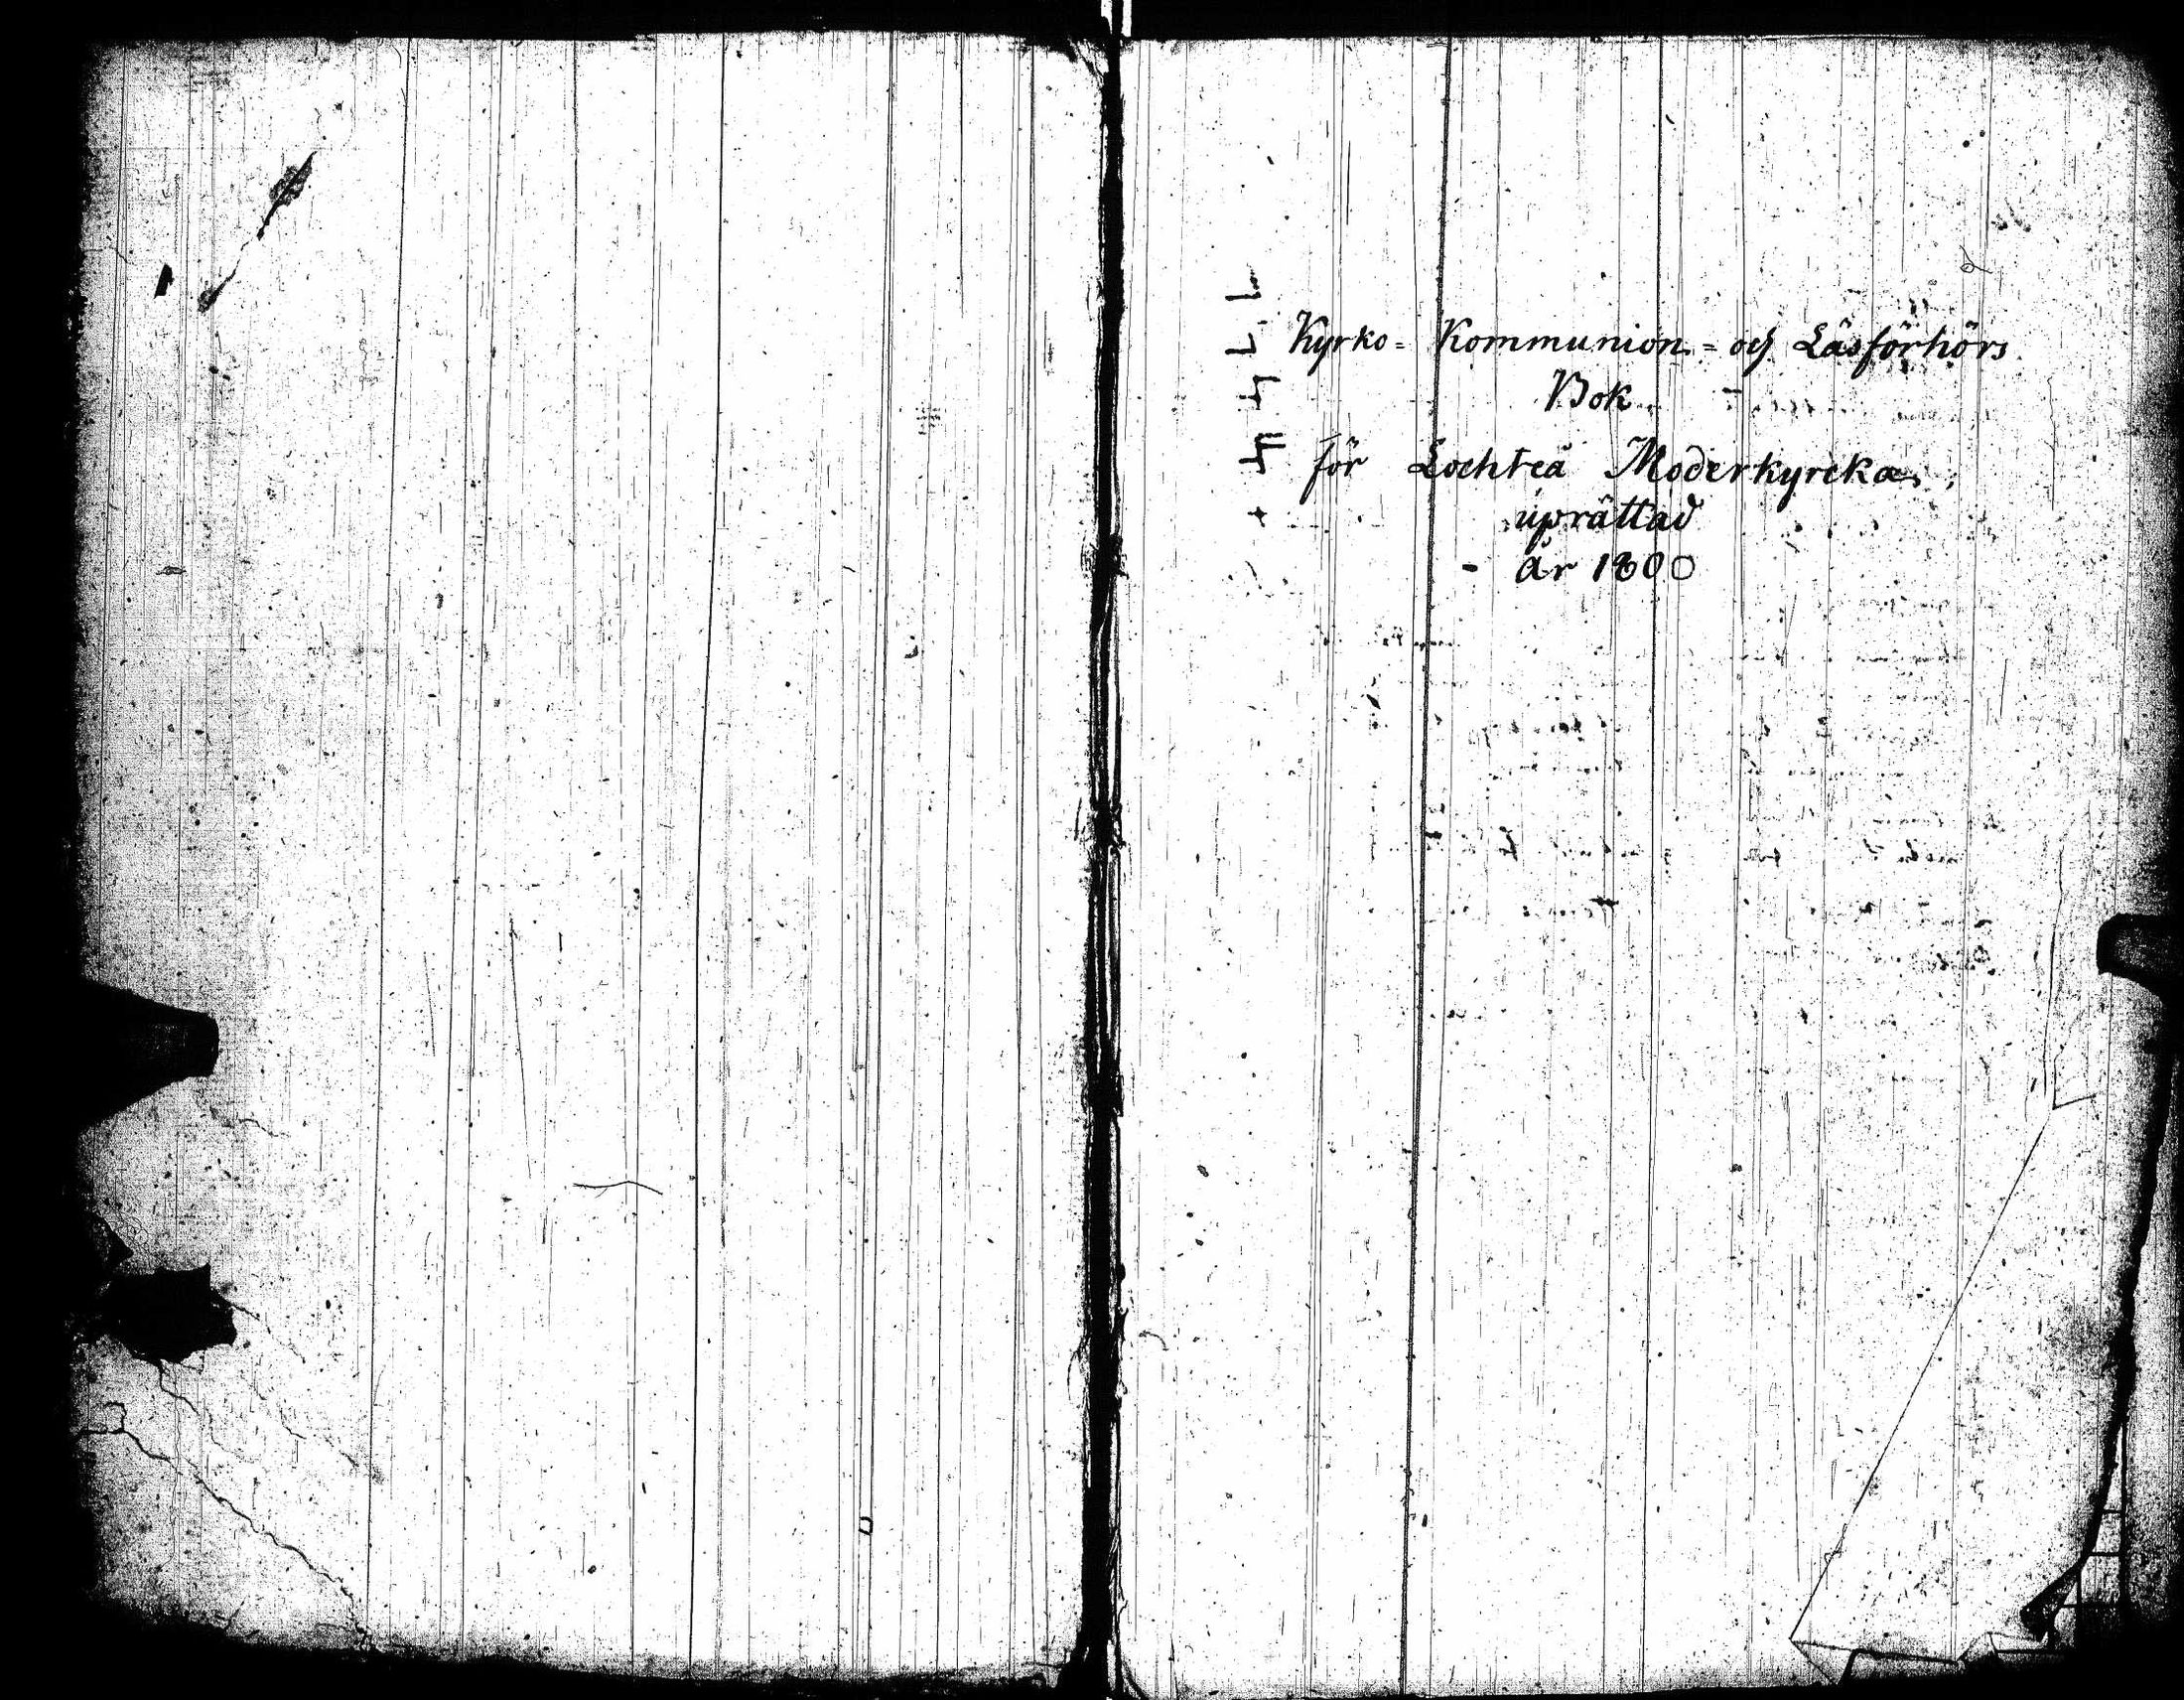 Kyrko= Kommunion= och Läsförhörs
Bok
för Lochteå Moderkyrcka,
uprättad
år 1800